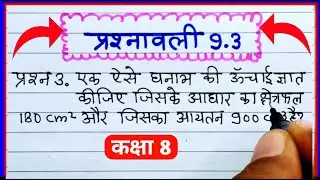 प्रश्नावली 9.3
प्रश्न 3. एक ऐसे घनाभ की ऊँचाई ज्ञात
कीजिए जिसके आधार का क्षेत्रफल
180 cm² और जिसका आयतन 900 c है?
कक्षा 8